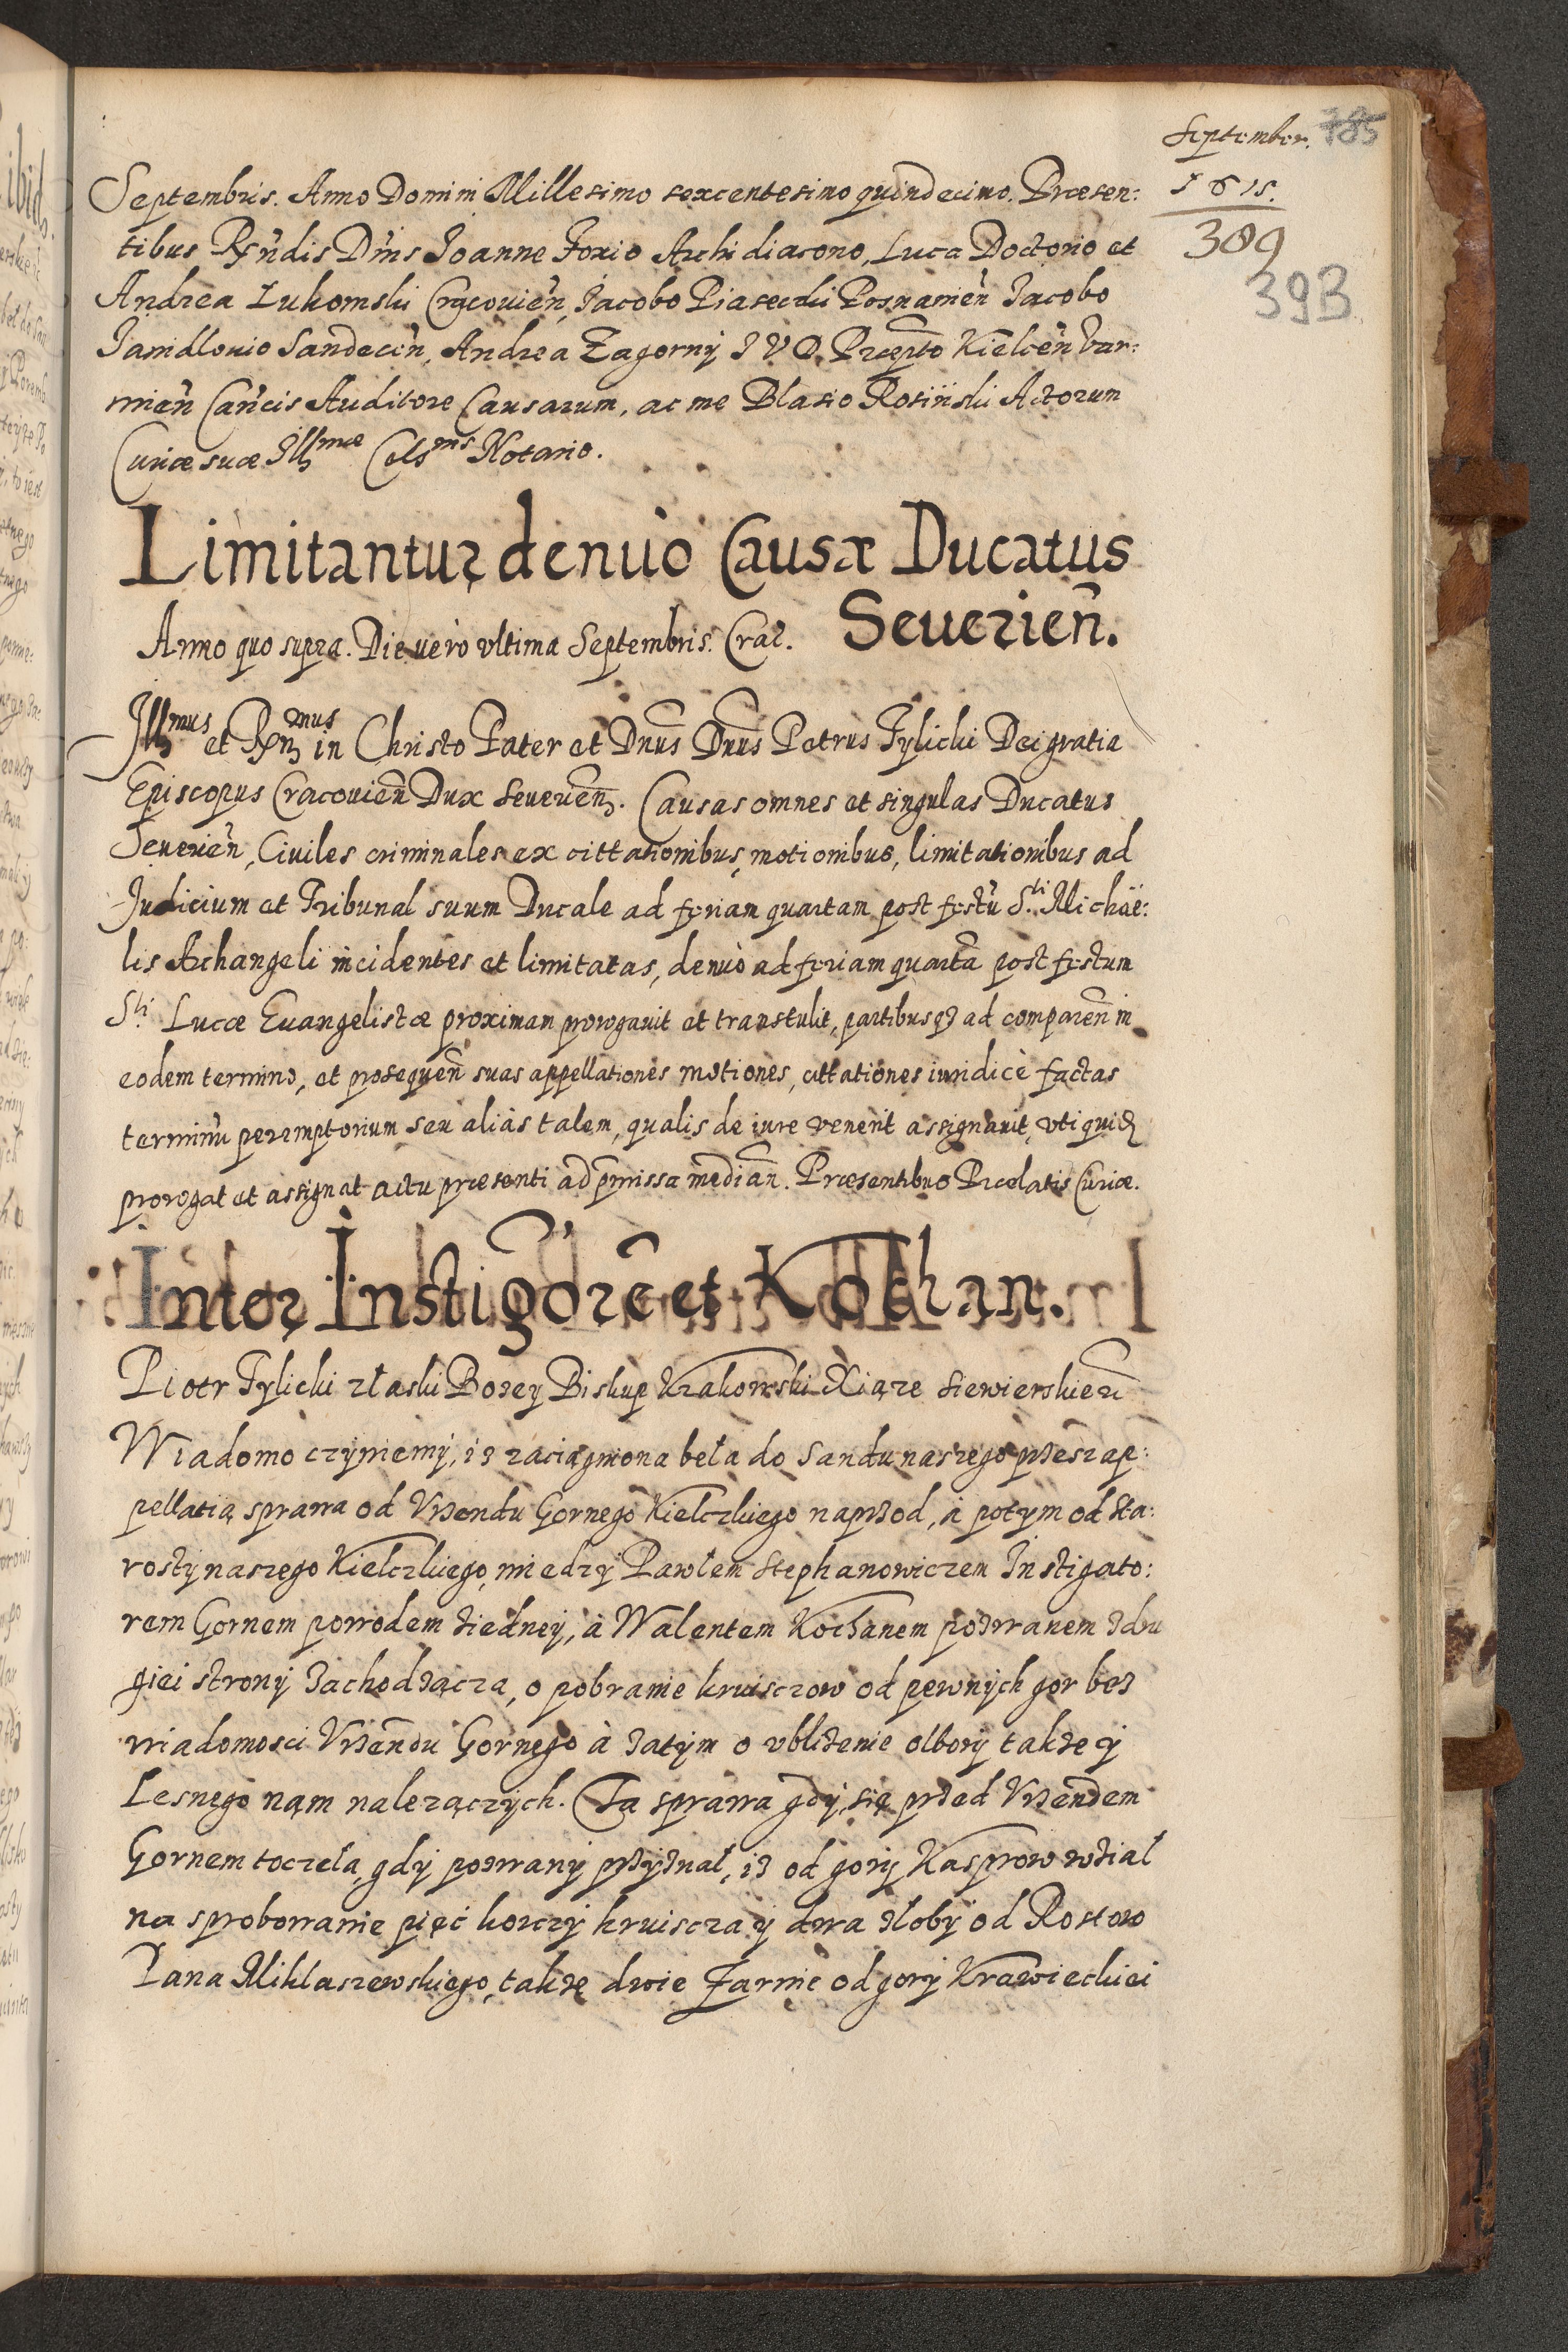 September. 785
1615.
389
393
Septembris. Anno Domini Millesimo sexcentesimo quindecimo. Præsen:
tibus Rñdis Dnis Joanne Foxio Archidiacono, Luca Doctorio et
Andrea Lukomski Cracouień, Jacobo Piasecki Posnanień Jacobo
Janidlouio Sandecen, Andrea Zagorny J V D. Præpto Kielcen Var:
mien Cancis Auditore Causarum, ac me Blasio Rosiński Actorum
Curiæ suæ Illmæ Celsnis Notario.
Limitantur denuò Causæ Ducatus
Seuerień.
Anno quo supra. Die uerò vltima Septembris. Crac.
Illmus et Rmus in Christo Pater et Dnus Dnus Petrus Tylicki Dei gratia
Episcopus Cracouień Dux Seuerien. Causas omnes et singulas Ducatus
Seuerień, Ciuiles criminales ex cittationibus, motionibus, limitationibus ad
Judicium et Tribunal suum Ducale ad feriam quartam post festũ Sti Michaë:
lis Archangeli incidentes et limitatas, denuò ad feriam quartã post festum
Sti Lucæ Euangelistæ proximam prorogauit et transtulit, partibusq3 ad comparen in
eodem termino, et prosequen suas appellationes motiones, cittationes iuridicè factas
terminũ peremptorium seu aliàs talem, qualis de iure venerit assignauit, vti quidẽ
prorogat et assignat actu præsenti ad pmissa median. Præsentibus Prælatis Curiæ.
Inter Instigorẽ et Kochan.
Piotr Tylicki z łaski Bozey Biskup Krakowski Xiąze Siewierskie rc
Wiadomo czynięmy, iz zaciągniona beła do Sandu naszego przesz ap:
pellatią sprawa od Vrzendu Gornego Kielczkiego naprzod, à potym od Sta:
rosty naszego Kielczkiego, miedzy Pawłem Stephanowiczem Instigato:
rem Gornem powodem ziedney, à Walentem Kochanem pozwanem zdru
giei strony zachodząca, o pobranie kruisczow od pewnych gor bez
wiadomosci Vrzendu Gornego à zatym o vbliżenie olbory także y
Lesnego nąm nalezączych. Ta sprawa gdy się przed Vrzendem
Gornem toczeła, gdy pozwany przyznał, iz od gory Kasprow wział
na sprobowanie pięć korczy kruiscza y dwa złoby od Rostow
Pana Miklaszewskiego, takżę dwie Zarnie od gory Krawieckiei